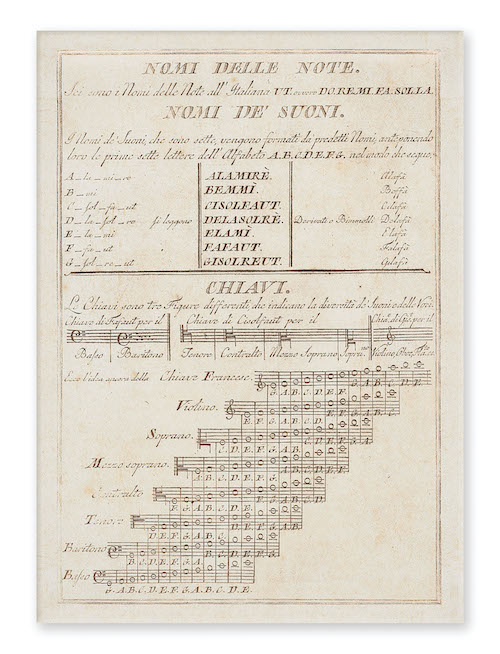 NOMI DELLE NOTE.
Sei sono i Nomi delle Note all' Italiana UT. ovvero DO.RE.MI.FA.SOL.LA.
NOMI DE' SUONI.
I Nomi de' Suoni, che sono sette, vengono formati da predetti Nomi, anteponendo
loro le prime sette lettere dell' Alfabeto A.B.C.D.E.F.G. nel modo che segue,
A _ la _ mi _ re ALAMIRÈ. Alafà
B _ mi BEMMÌ. Beffà
C _ sol _ fa _ ut CISOLFAUT. Cilafà
D _ la _ sol _ re si leggono DELASOLRÈ. Derivati o Bimmolli Delafà
E _ la _ mi ELAMÌ. Elafà
F _ fa _ ut FAFAUT. Falafà
G _ sol _ re _ ut GISOLREUT. Gilafà
CHIAVI.
Le Chiavi sono tre Figure differenti, che indicano la diversità de' Suoni e delle Voci.
Chiave di Fafaut per il Chiave di Cisolfaut per il
Basso Baritono Tenore Contralto Mezzo Soprano, Violino
Ecco l'idea della Chiave Francese.
G. A.B.C. D.E.F.
Violino.
E.F.G. A.B.C.D.E.F.G.A.B.C.
Soprano.
Mezzo soprano.
A.B.C.D.E.F.G.A.B.C.D.E.F.
Contralto
Tenore
D.E.F.G.A.B.C.D.E.F.G.A.B.
Baritono
B.C.D.E.F.G.A.B.C.D.E.F.G.
Basso
G.A.B.C.D.E.F.G.A.B.C.D.E.